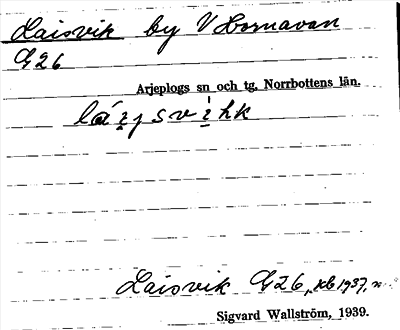 Laisvik by V Hornavan
G26
Arjeplogs sn och tg, Norrbottens län.
Laisvik G26, kb 1937,
Sigvard Wallström, 1939.